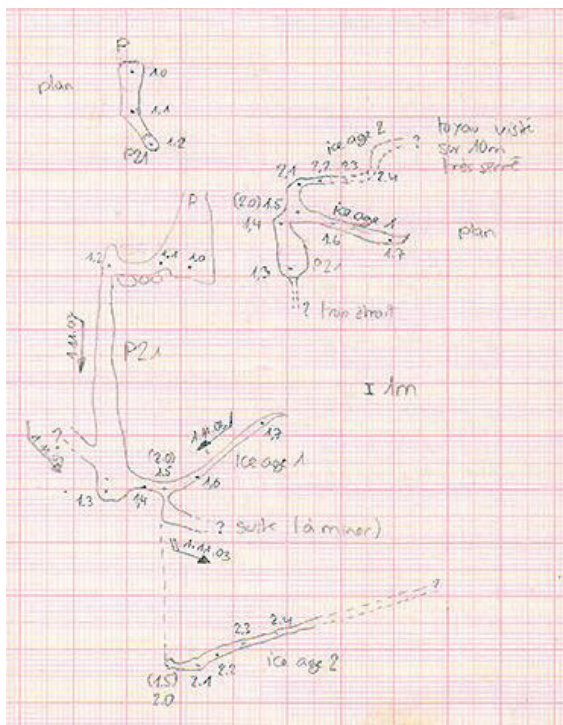 P
1.0
plan
1.1
1.2
P21
ice age 2
?
tuyau visité
sur 10m
très serré
2.1
2.2
2.3
2.4
(2.0)
1.5
1.4
ice age 1
1.6
1.7
plan
P21
1.3
? trop étroit
P
1.2
1.1
1.0
1.11.03
P21
I 1m
?
1.11.03
1.11.03
(2.0)
1.5
1.7
ice age 1
1.6
1.3
1.4
? suite (à miner)
1.11.03
?
2.4
2.3
2.2
2.1
ice age 2
(1.5)
2.0